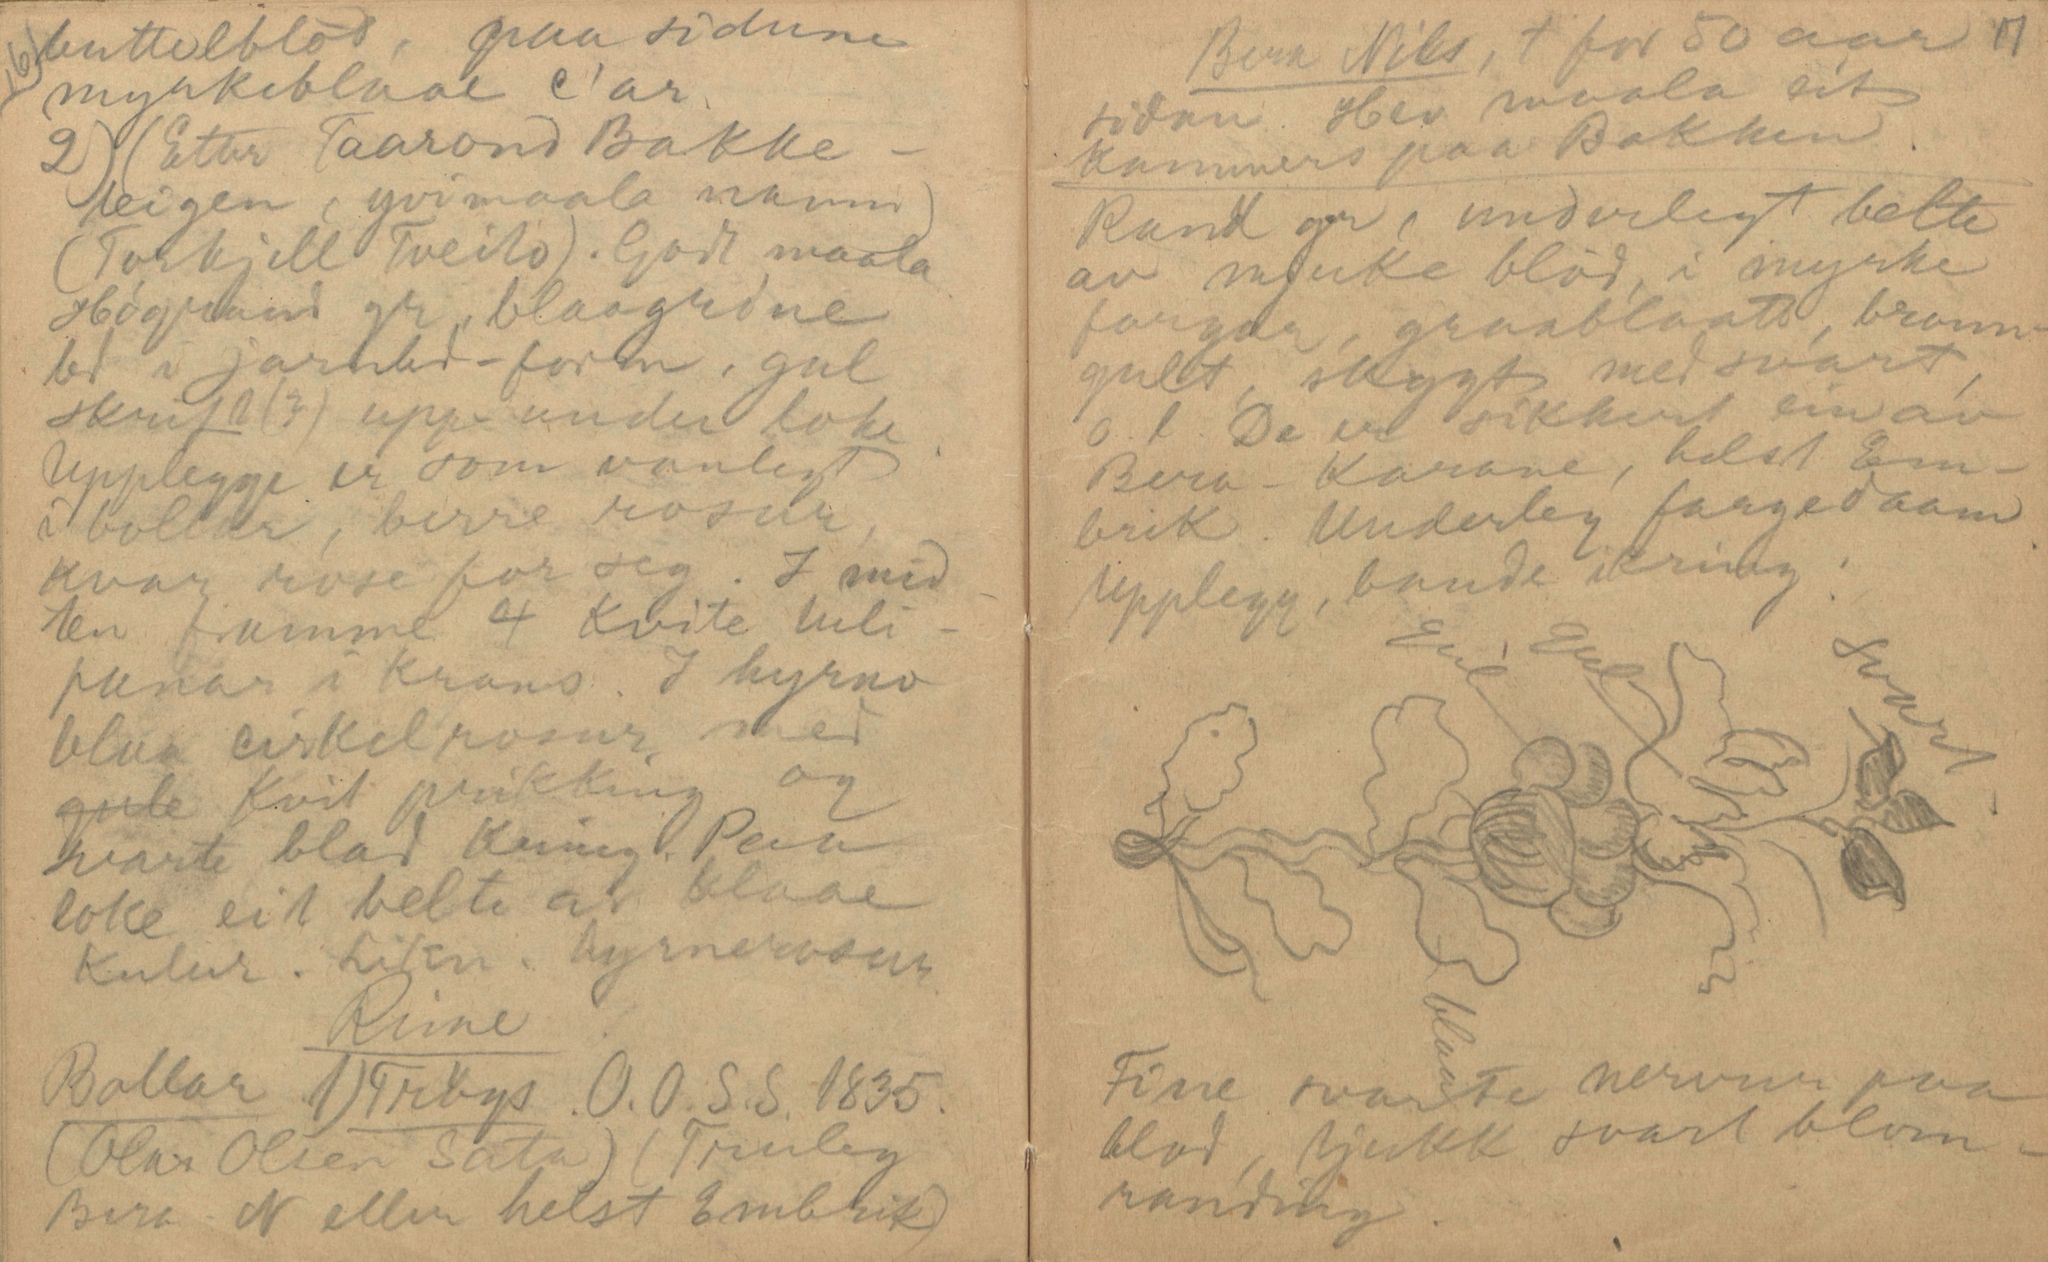 16)
buttelblod, paa sidune
myrkeblaae c'ar.
2) (Etter Taarond Bakke-
teigen, yvimaala namn)
(Torkjell Tveito). Godt maala
Høgrand gr, blaagrøne
bd i jarnbd-form, gul
skrift (?) upp under loke.
Upplegge er som vanlegt
i bollar, berre rosur,
kvar rose for seg. I mid-
ten framme 4 kvite tuli-
panar i krans. I hyrno
blaa cirkelrosur med
gule kvit prikking og
svarte blad kring. Paa
loke eit belte av blaae
kulur. Likn. hyrnerosur.
Rime
Bollar 1) Trøys. O.O.S.S. 1835.
(Olav Olsen Sata) (Truleg
Bera-N eller helst Embrik)
17
Bera Nils, † for 50 aar
sidan. Hev maala eit
kammers paa Bakken.
Rand gr, underlegt belte
av mjuke blod, i myrke
fargar, graablaatt, brunn-
gult, skygt med svart,
o. l. De er sikkert ein av
Bera-Karane, helst Em-
brik. Underleg fargedaam
Upplegg, bande ikring:
Svart
blaa
Fine svarte nervur paa
blod, tjukk svart blom-
randing.